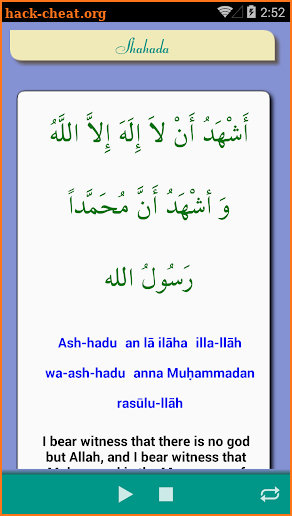 hack-cheat.org
2:52
Shahada
أَشْهَدُ أَنْ لاَ إِلَهَ إِلاَّ اللَّهُ
وَ أشْهَدُ أَنَّ مُحَمَّداً
رَسُولُ الله
Ash-hadu an lā ilāha illa-llāh
wa-ash-hadu anna Muḥammadan
rasūlu-llāh
I bear witness that there is no god
but Allah, and I bear witness that